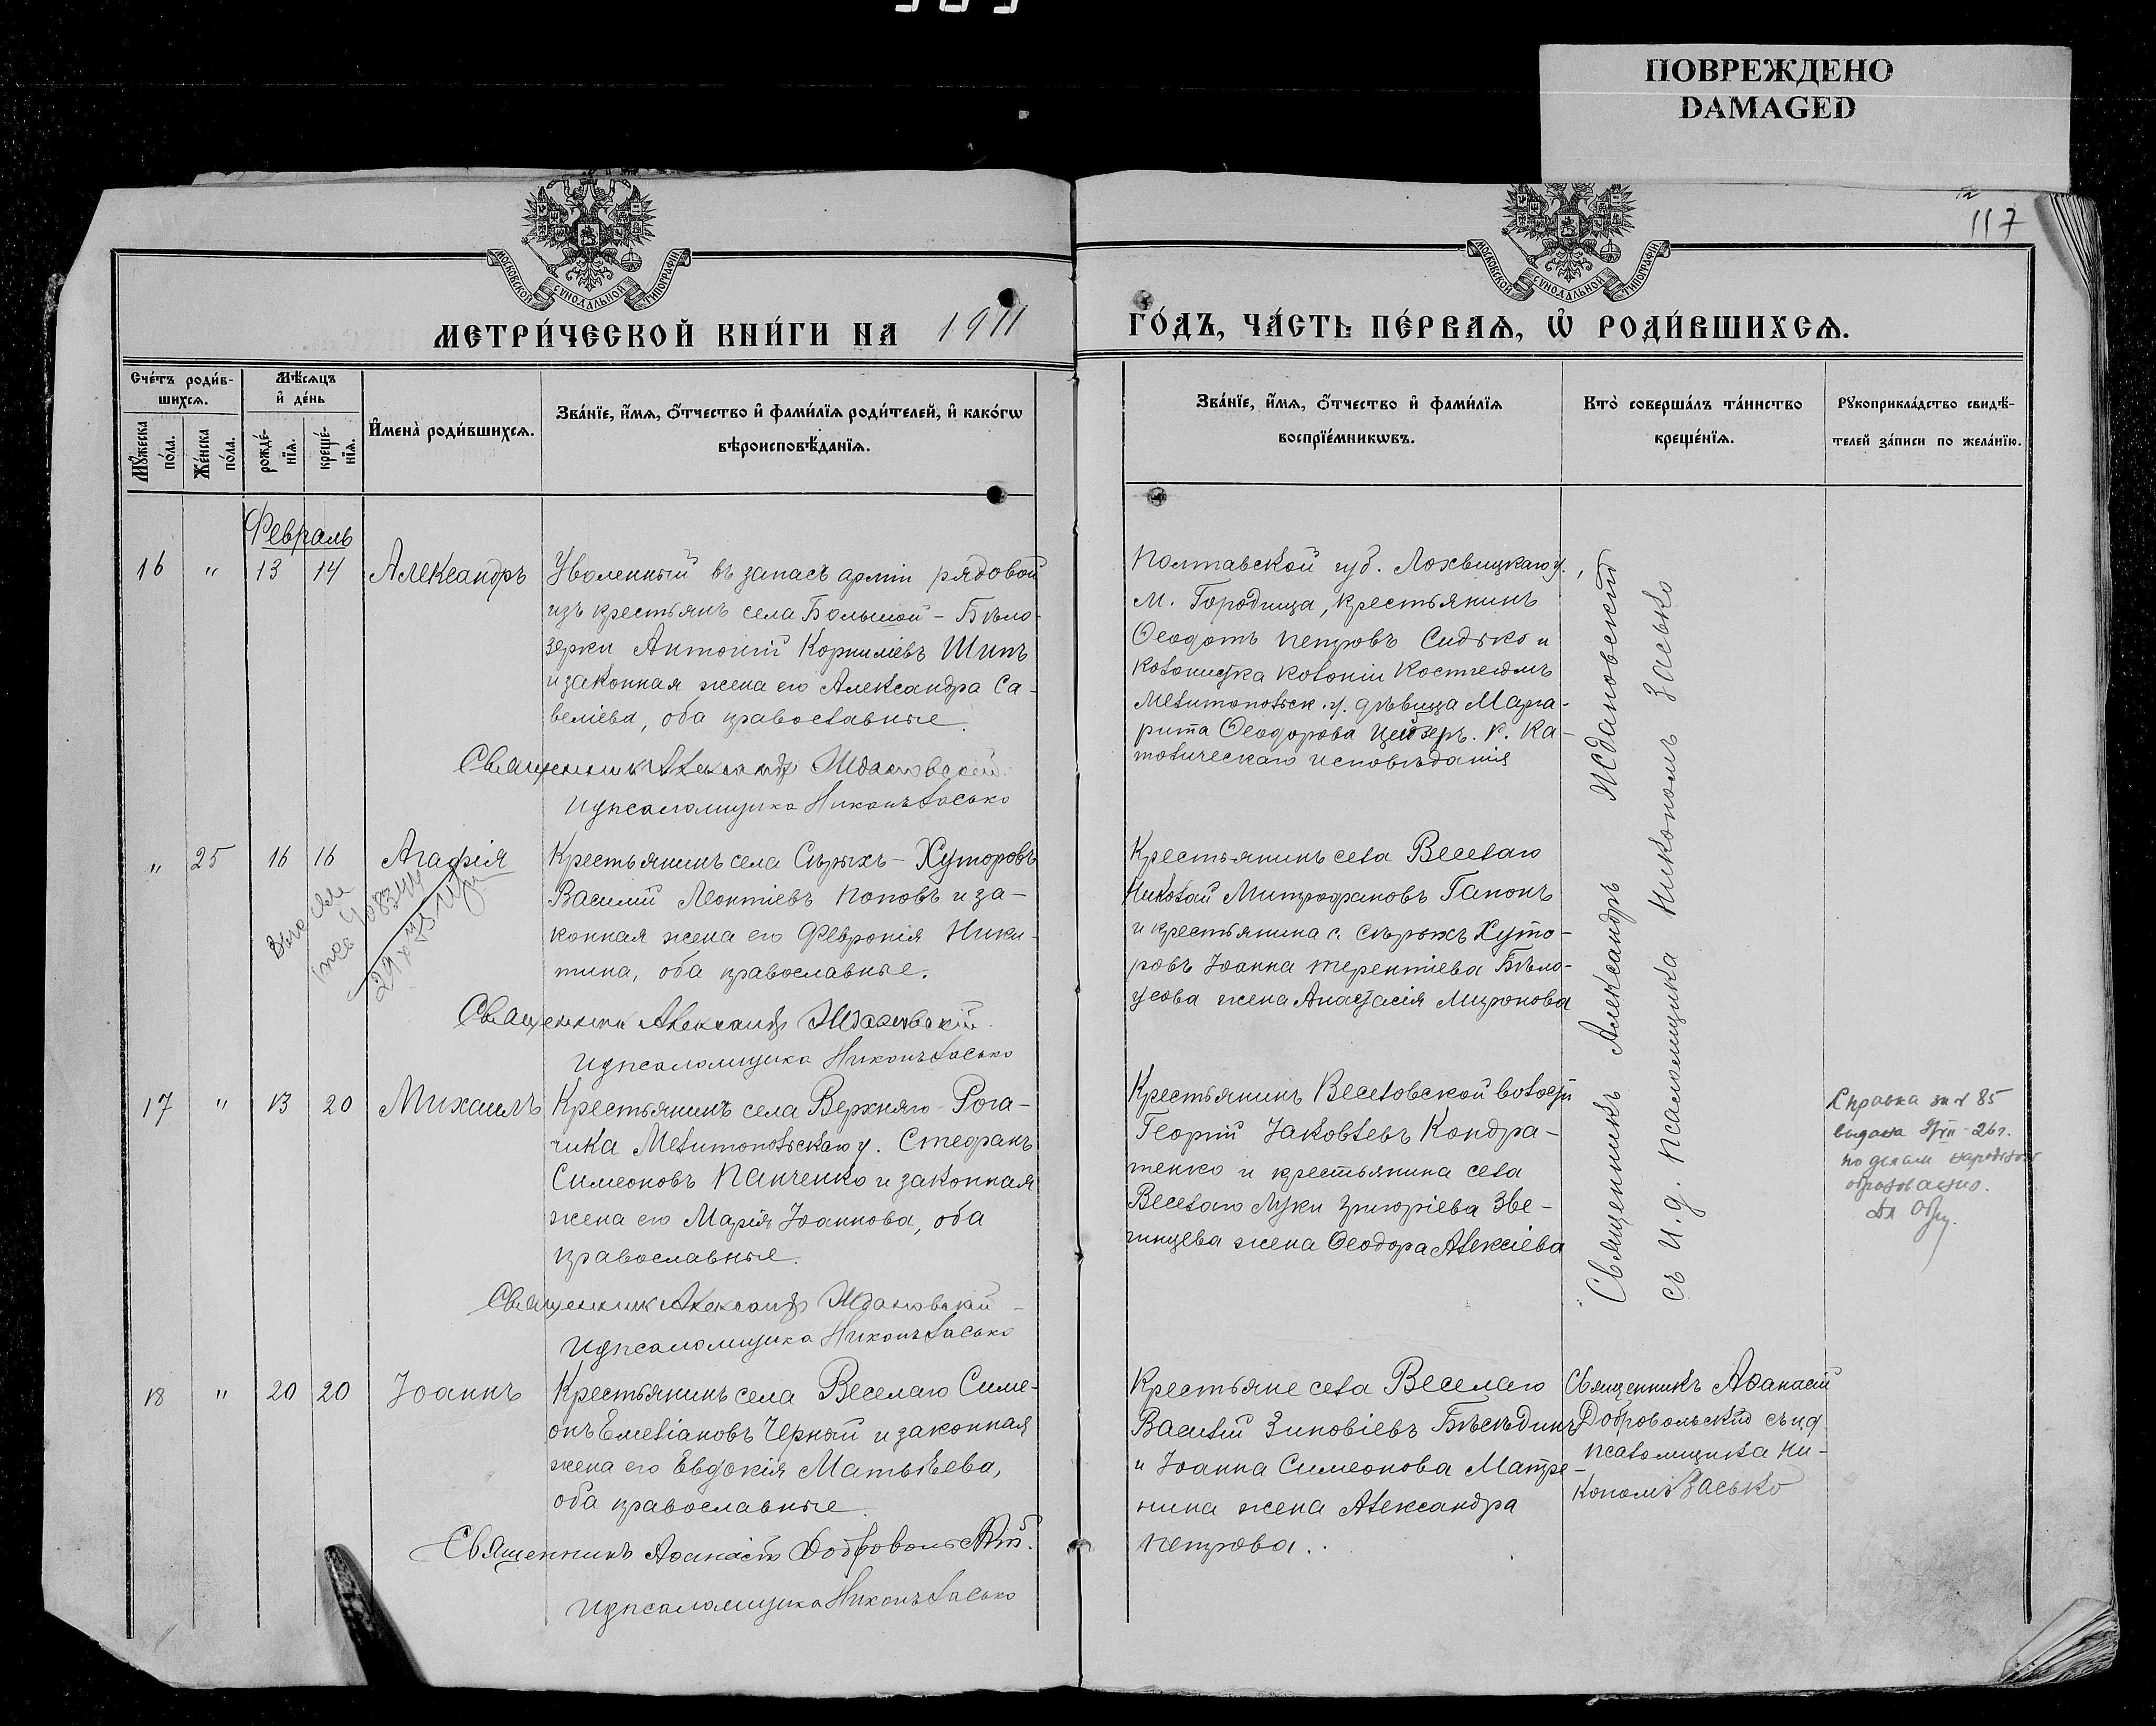 ПОВРЕЖДЕНО
DAMAGED
117
МОСКОВСКОЙ СѴНОДАЛЬНОЙ ТИПОГРАФІИ
МОСКОВСКОЙ СѴНОДАЛЬНОЙ ТИПОГРАФІИ
МЕТРИ́ЧЕСКОЙ КНИ́ГИ НА 1911
ГО́ДЪ, ЧА́СТЬ ПЕ́РВАѦ, Ѡ҆ РОДИ́ВШИХСѦ.
Сче́тъ роди́в-
шихсѧ.
Мꙋ́жеска
по́ла.
Же́нска
по́ла.
Мѣ́сѧцъ
и҆ де́нь
рожде́-
нїѧ.
креще́-
нїѧ.
И҆мена̀ роди́вшихсѧ.
Зва́нїе, и҆́мѧ, ѻ҆́тчество и҆ фами́лїѧ роди́телей, и҆ како́гѡ
вѣроисповѣ́данїѧ.
Зва́нїе, и҆́мѧ, ѻ҆́тчество и҆ фами́лїѧ
воспрїе́мникѡвъ.
Кто̀ соверша́лъ та́инство
креще́нїѧ.
Рꙋкоприкла́дство свидѣ́-
телей за́писи по жела́нїю.
Февраль
16 " 13 14 Александръ
Уволенный въ запасъ арміи рядовой
изъ крестьянъ села Большой - Бѣло-
зерки Антоній Корниліевъ Шипъ
и законная жена его Александра Са-
веліева, оба православные.
Священникъ Александръ Ждановскій.
И д псаломщика Никонъ Засько
Полтавской губ. Лохвицкаго у.,
м. Городища, крестьянинъ
Ѳеодотъ Петровъ Сидѣко и
колонистка колоніи Костгеймъ
Мелитопольск. у. дѣвица Марга-
рита Ѳеодорова Цейзеръ. р. ка-
толическаго исповѣданія
" 25 16 16 Агафія
Крестьянинъ села Сѣрыхъ - Хуторовъ
Василій Леонтіевъ Поповъ и за-
конная жена его Февронія Ники-
тина, оба православные.
Священникъ Александръ Ждановскій.
И д псаломщика Никонъ Засько
Крестьянинъ села Веселаго
Николай Митрофановъ Гапонъ
и крестьянина с. Сѣрыхъ Хуто-
ровъ Іоанна Терентіева Бѣло-
усова жена Анастасія Миронова
17 " 13 20 Михаилъ
Крестьянинъ села Верхняго - Рога-
чика Мелитопольскаго у. Стефанъ
Симеоновъ Панченко и законная
жена его Марія Іоаннова, оба
православные.
Священникъ Александръ Ждановскій
И д псаломщика Никонъ Засько
Крестьянинъ Веселовской волости
Георгій Іаковлевъ Кондра-
тенко и крестьянина села
Веселаго Луки Григоріева Зве-
гинцева жена Ѳеодора Алексіева
Священникъ Александръ Ждановскій
съ и. д. псаломщика Никономъ Засько
Справка за № 85
выдана
по делам народного
образования.
18 " 20 20 Іоаннъ
Крестьянинъ села Веселаго Симе-
онъ Емеліановъ Черный и законная
жена его Евдокія Матвѣева,
оба православные.
Священникъ Аѳанасій Добровольскій.
И д псаломщика Никонъ Засько
Крестьяне села Веселаго
Василій Зиновіевъ Бѣсѣдинъ
и Іоанна Симеонова Матре-
нина жена Александра
Петрова.
Священникъ Аѳанасій
Добровольскій съ и. д.
псаломщика Ни-
кономъ Засько